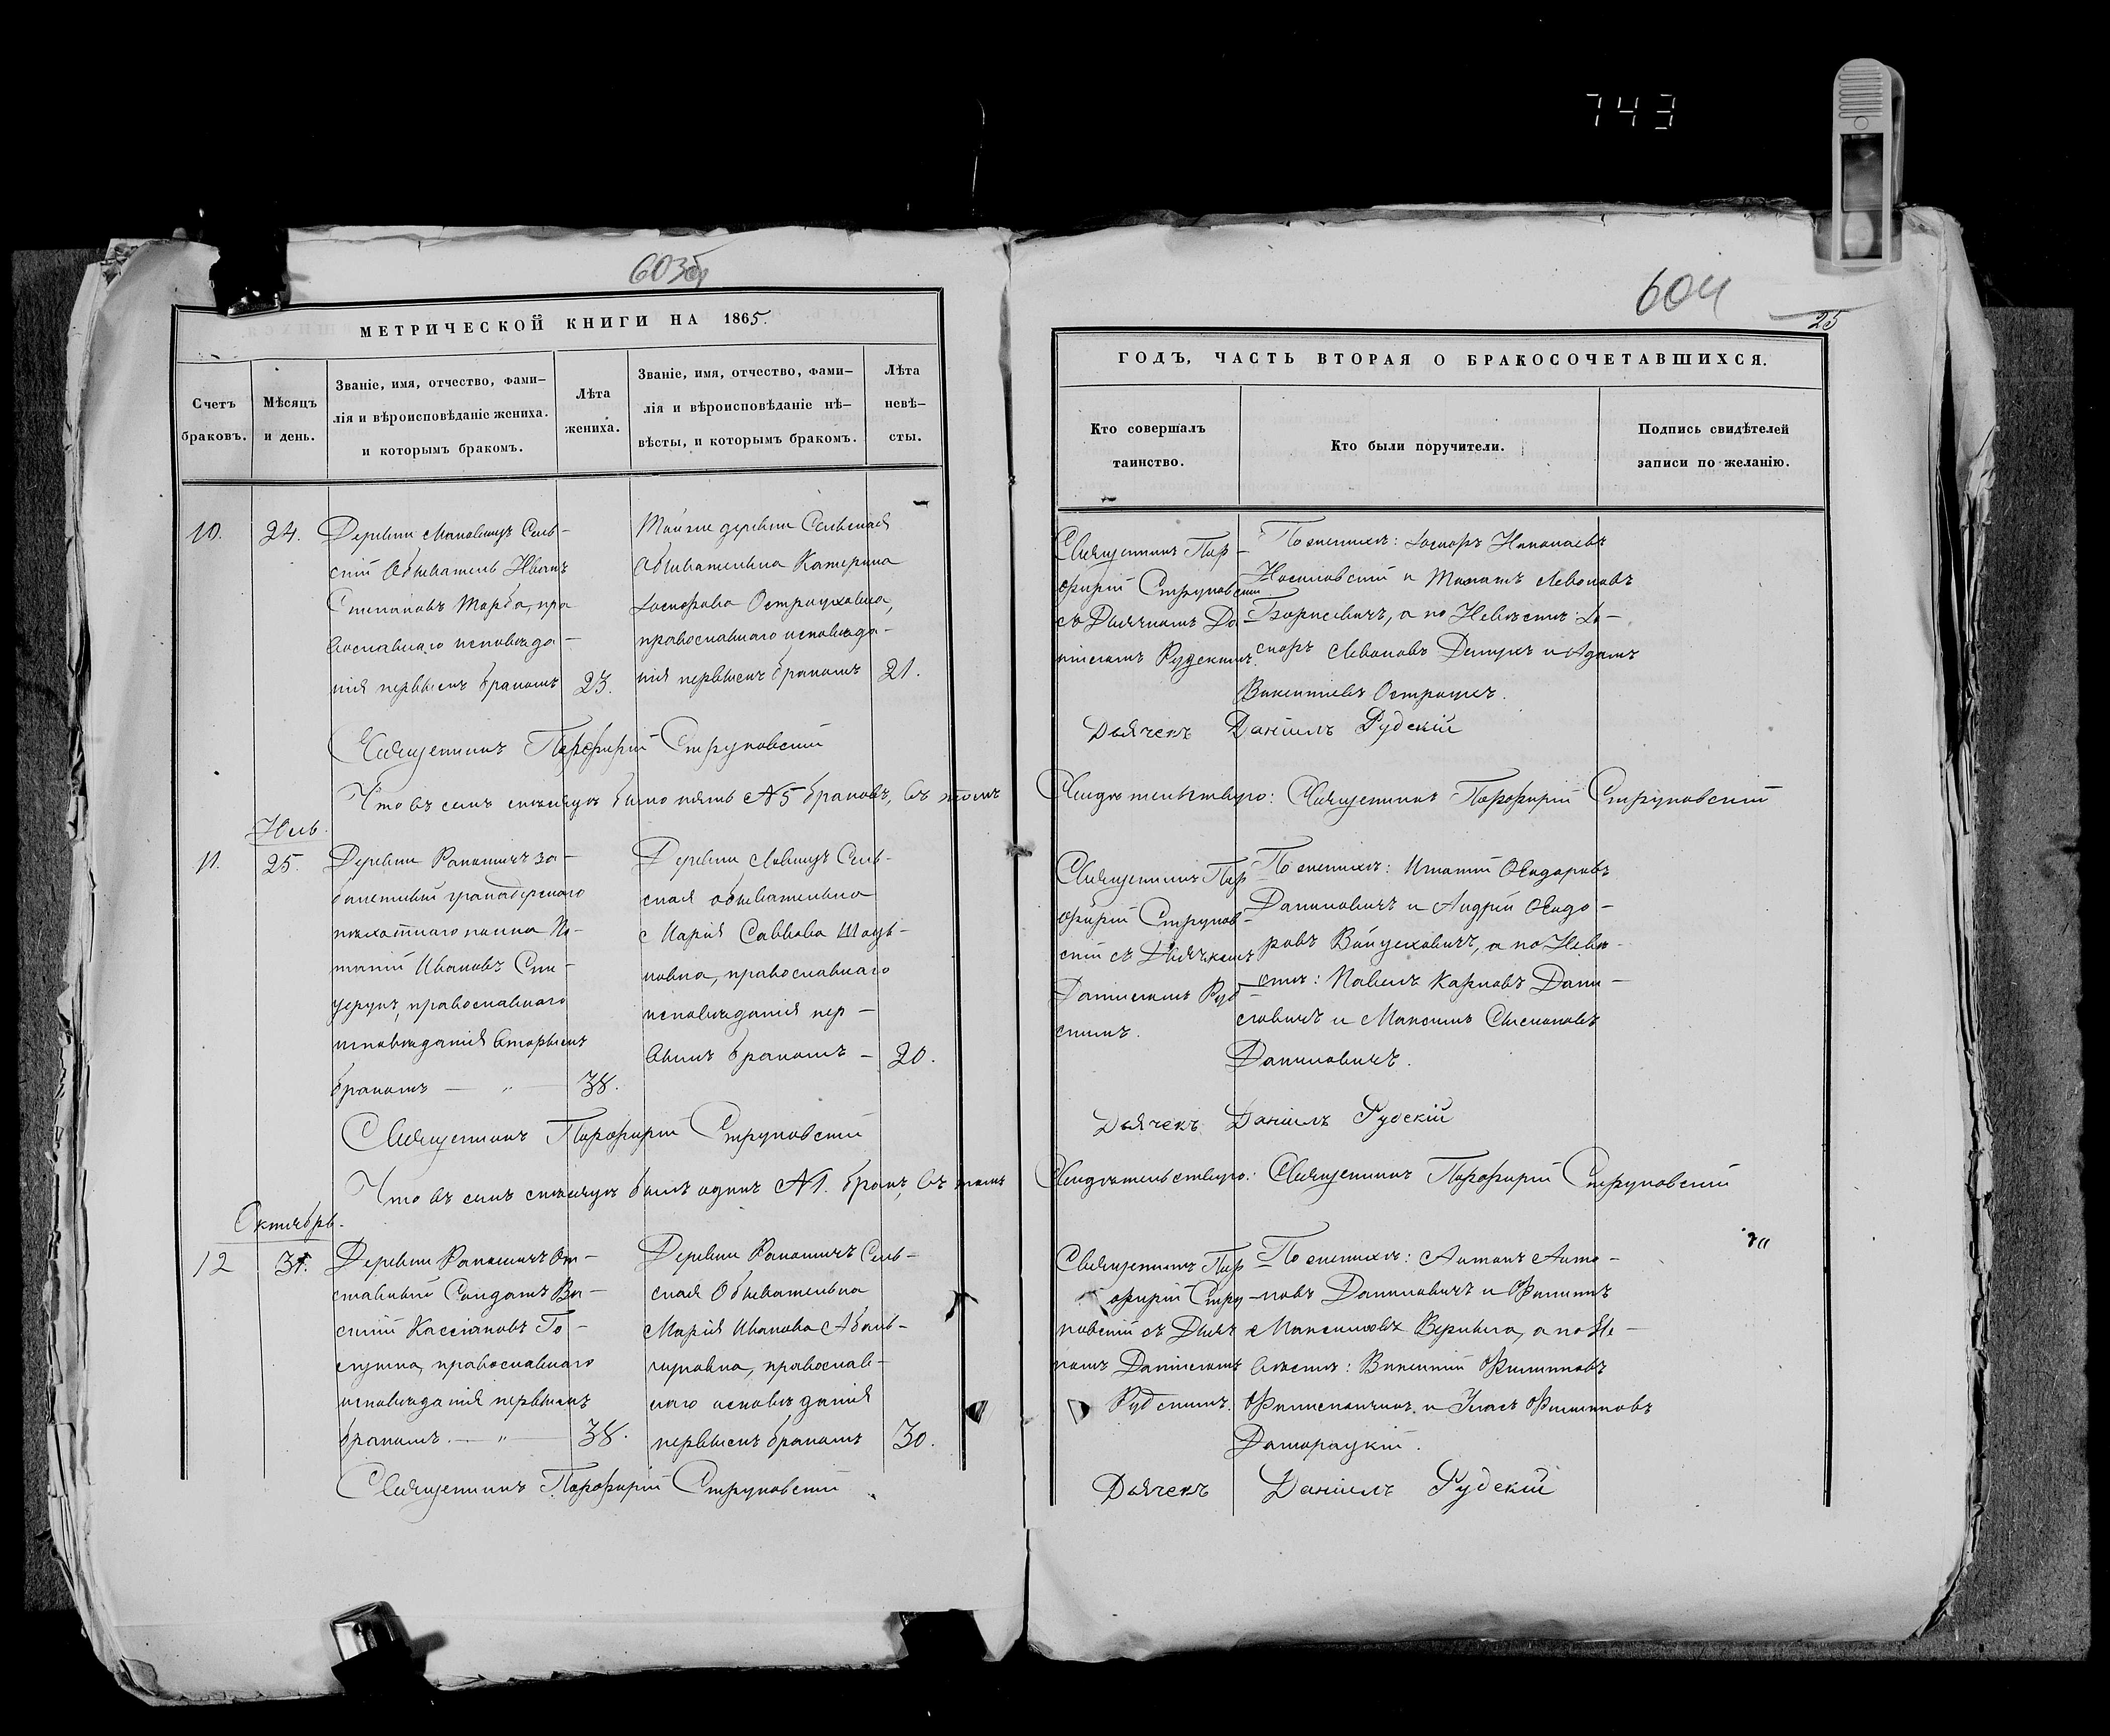 743
603об
604
25
МЕТРИЧЕСКОЙ КНИГИ НА 1865.
Счетъ браковъ.
Мѣсяцъ и день.
Званіе, имя, отчество, фами-
лія и вѣроисповѣданіе жениха.
и которымъ бракомъ.
Лѣта
жениха.
Званіе, имя, отчество, фами-
лія и вѣроисповѣданіе нѣ-
вѣсты, и которымъ бракомъ.
Лѣта
невѣ-
сты.
10.
24.
Деревни Сель-
скій Обыватель Иванъ
Степановъ Торба, пра
вославнаго исповѣда-
нія первымъ бракомъ
23.
Тойже деревни Сельская
Обывателька Катерина
Остроуховна,
православнаго исповѣда-
нія первымъ бракомъ
21.
Священникъ Порфирій Струковскій
Что въ семъ мѣсяцѣ было пять №5 браковъ, въ томъ
Июль.
11.
25.
Деревни за-
билетный гранадерскаго
пѣхотнаго полка Иг-
натій Ивановъ
православнаго
исповѣданія вторымъ
бракомъ — „ —
38.
Деревни Сель-
ская обывателька
Марія Саввова
православнаго
исповѣданія пер-
вымъ бракомъ —
20.
Священникъ Порфирій Струковскій
Что въ семъ мѣсяцѣ былъ одинъ №1. бракъ, въ томъ
Октябрь.
12
31.
Деревни От-
ставный Солдатъ Ва-
силій Кассіановъ Го-
православнаго
исповѣданія первымъ
бракомъ. — „ —
38.
Деревни Сель-
ская Обывателька
Марія Иванова
православ-
наго исповѣданія
первымъ бракомъ
30.
Священникъ Порфирій Струковскій
ГОДЪ, ЧАСТЬ ВТОРАЯ О БРАКОСОЧЕТАВШИХСЯ.
Кто совершалъ
таинство.
Кто были поручители.
Подпись свидѣтелей
записи по желанію.
Священникъ Пор-
фирій Струковскій
съ Дьячкомъ Да-
ніиломъ Рудскимъ.
По женихѣ: Николаевъ
и Леоновъ
Борисевичъ, а по Невѣстѣ:
Леоновъ и Адамъ
Викентіевъ
Дьячекъ Даніилъ Рудскій
Свидѣтельствую: Священникъ Порфирій Струковскій
Священникъ Пор
фирій Струков-
скій съ Дьячкомъ
Даніиломъ Руд-
скимъ.
По женихѣ: Игнатій Ѳеодоровъ
Даниловичъ и Андрей Ѳеодо-
ровъ а по Невѣ-
стѣ: Павелъ Карповъ Дани-
ловичъ и Максимъ Симоновъ
Даниловичъ.
Дьячекъ Даніилъ Рудскій
Свидѣтельствую: Священникъ Порфирій Струковскій
Священникъ Пор
фирій Стру-
ковскій съ Дьяч
комъ Даніиломъ
Рудскимъ.
По женихѣ: Антонъ Анто-
новъ Даниловичъ и Филипъ
Максимовъ а по Не-
вѣстѣ: Викентій Филиповъ
и Филиповъ
Дьячекъ Даніилъ Рудскій